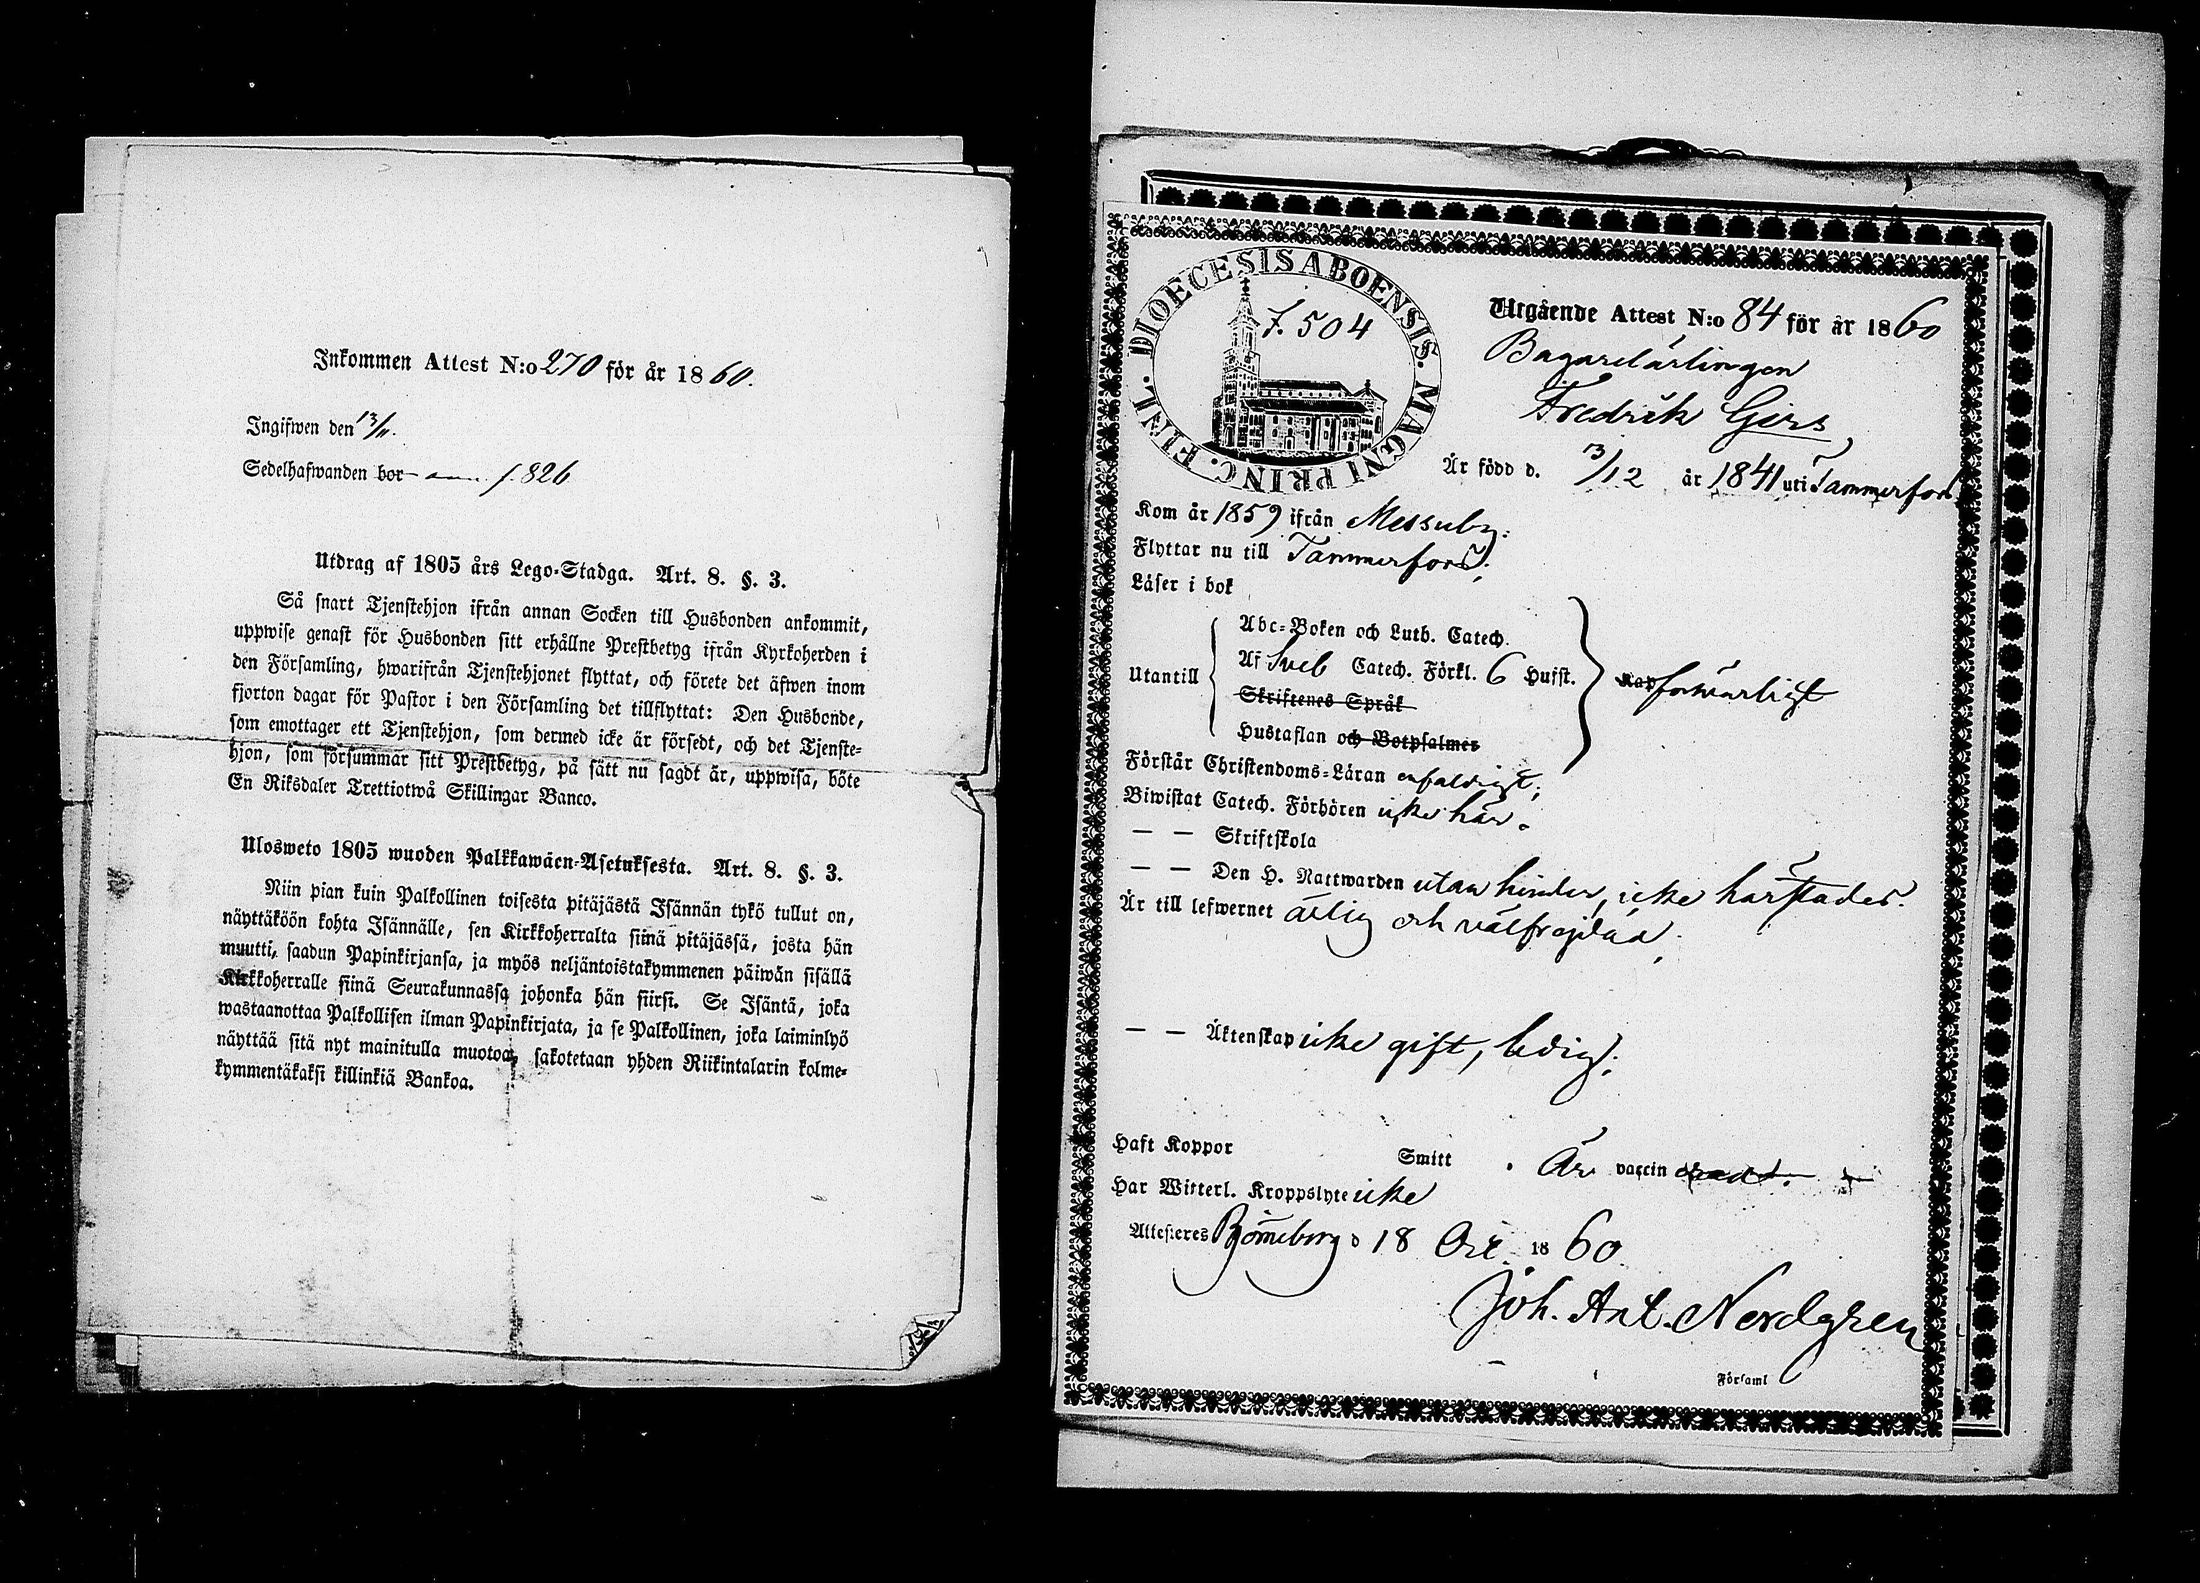 Inkommen Attest N:o 270 för år 1860.
Ingifwen den 13/11.
Sedelhafwanden bor f. 826
Utdrag af 1805 års Lego-Stadga. Art. 8. §. 3.
Så snart Tjenstehjon ifrån annan Socken till Husbonden ankommit,
uppwise genast för Husbonden sitt erhållne Prestbetyg ifrån Kyrkoherden i
den Församling, hwarifrån Tjenstehjonet flyttat, och förete det äfwen inom
fjorton dagar för Pastor i den Församling det tillflyttat: Den Husbonde,
som emottager ett Tjenstehjon, som dermed icke är försedt, och det Tjenste-
hjon, som försummar sitt Prestbetyg, på sätt nu sagdt är, uppwisa, böte
En Riksdaler Trettiotwå Skillingar Banco.
Ulosweto 1805 wuoden Palkkawäen-Asetuksesta. Art. 8. §. 3.
Niin pian kuin Palkollinen toisesta pitäjästä Isännän tykö tullut on,
näyttäköön kohta Isännälle, sen Kirkkoherralta siinä pitäjässä, josta hän
muutti, saadun Papinkirjansa, ja myös neljäntoistakymmenen päiwän sisällä
Kirkkoherralle siinä Seurakunnassa johonka hän siirsi. Se Isäntä, joka
wastaanottaa Palkollisen ilman Papinkirjata, ja se Palkollinen, joka laiminlyö
näyttää sitä nyt mainitulla muotoa, sakotetaan yhden Riikintalarin kolme-
kymmentäkaksi killinkiä Bankoa.
DIOECESIS ABOENSIS. MAGNI PRINC. FINL.
f. 504
Utgående Attest N:o 84 för år 1860
Bagarelärlingen
Fredrik Girs,
Är född d. 13/12 år 1841 uti Tammerfors
Kom år 1859 ifrån Messuby.
Flyttar nu till Tammerfors.
Läser i bok
Abc-Boken och Luth. Catech.
Utantill Af Sveb Catech. Förkl. 6 Hufst. Kap försvarligt
Skriftenes Språk
Hustaflan och Botpsalmer
Förstår Christendoms-Läran enfaldigt;
Biwistat Catech. Förhören icke här.
— — Skriftskola
— — Den H. Nattwarden utan hinder, icke härstädes.
Är till lefwernet ärlig och välfrejdad,
— — Äktenskap icke gift, ledig;
Haft Koppor Smitt . Är vaccinerad.
Har Witterl. Kroppslyte icke
Attesteres Björneborg d 18 Oct. 1860.
Joh. Ant. Nordgren
Församl